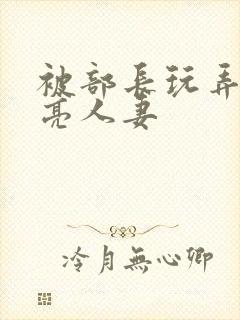 被部長玩弄
亮人妻
冷月無心卿